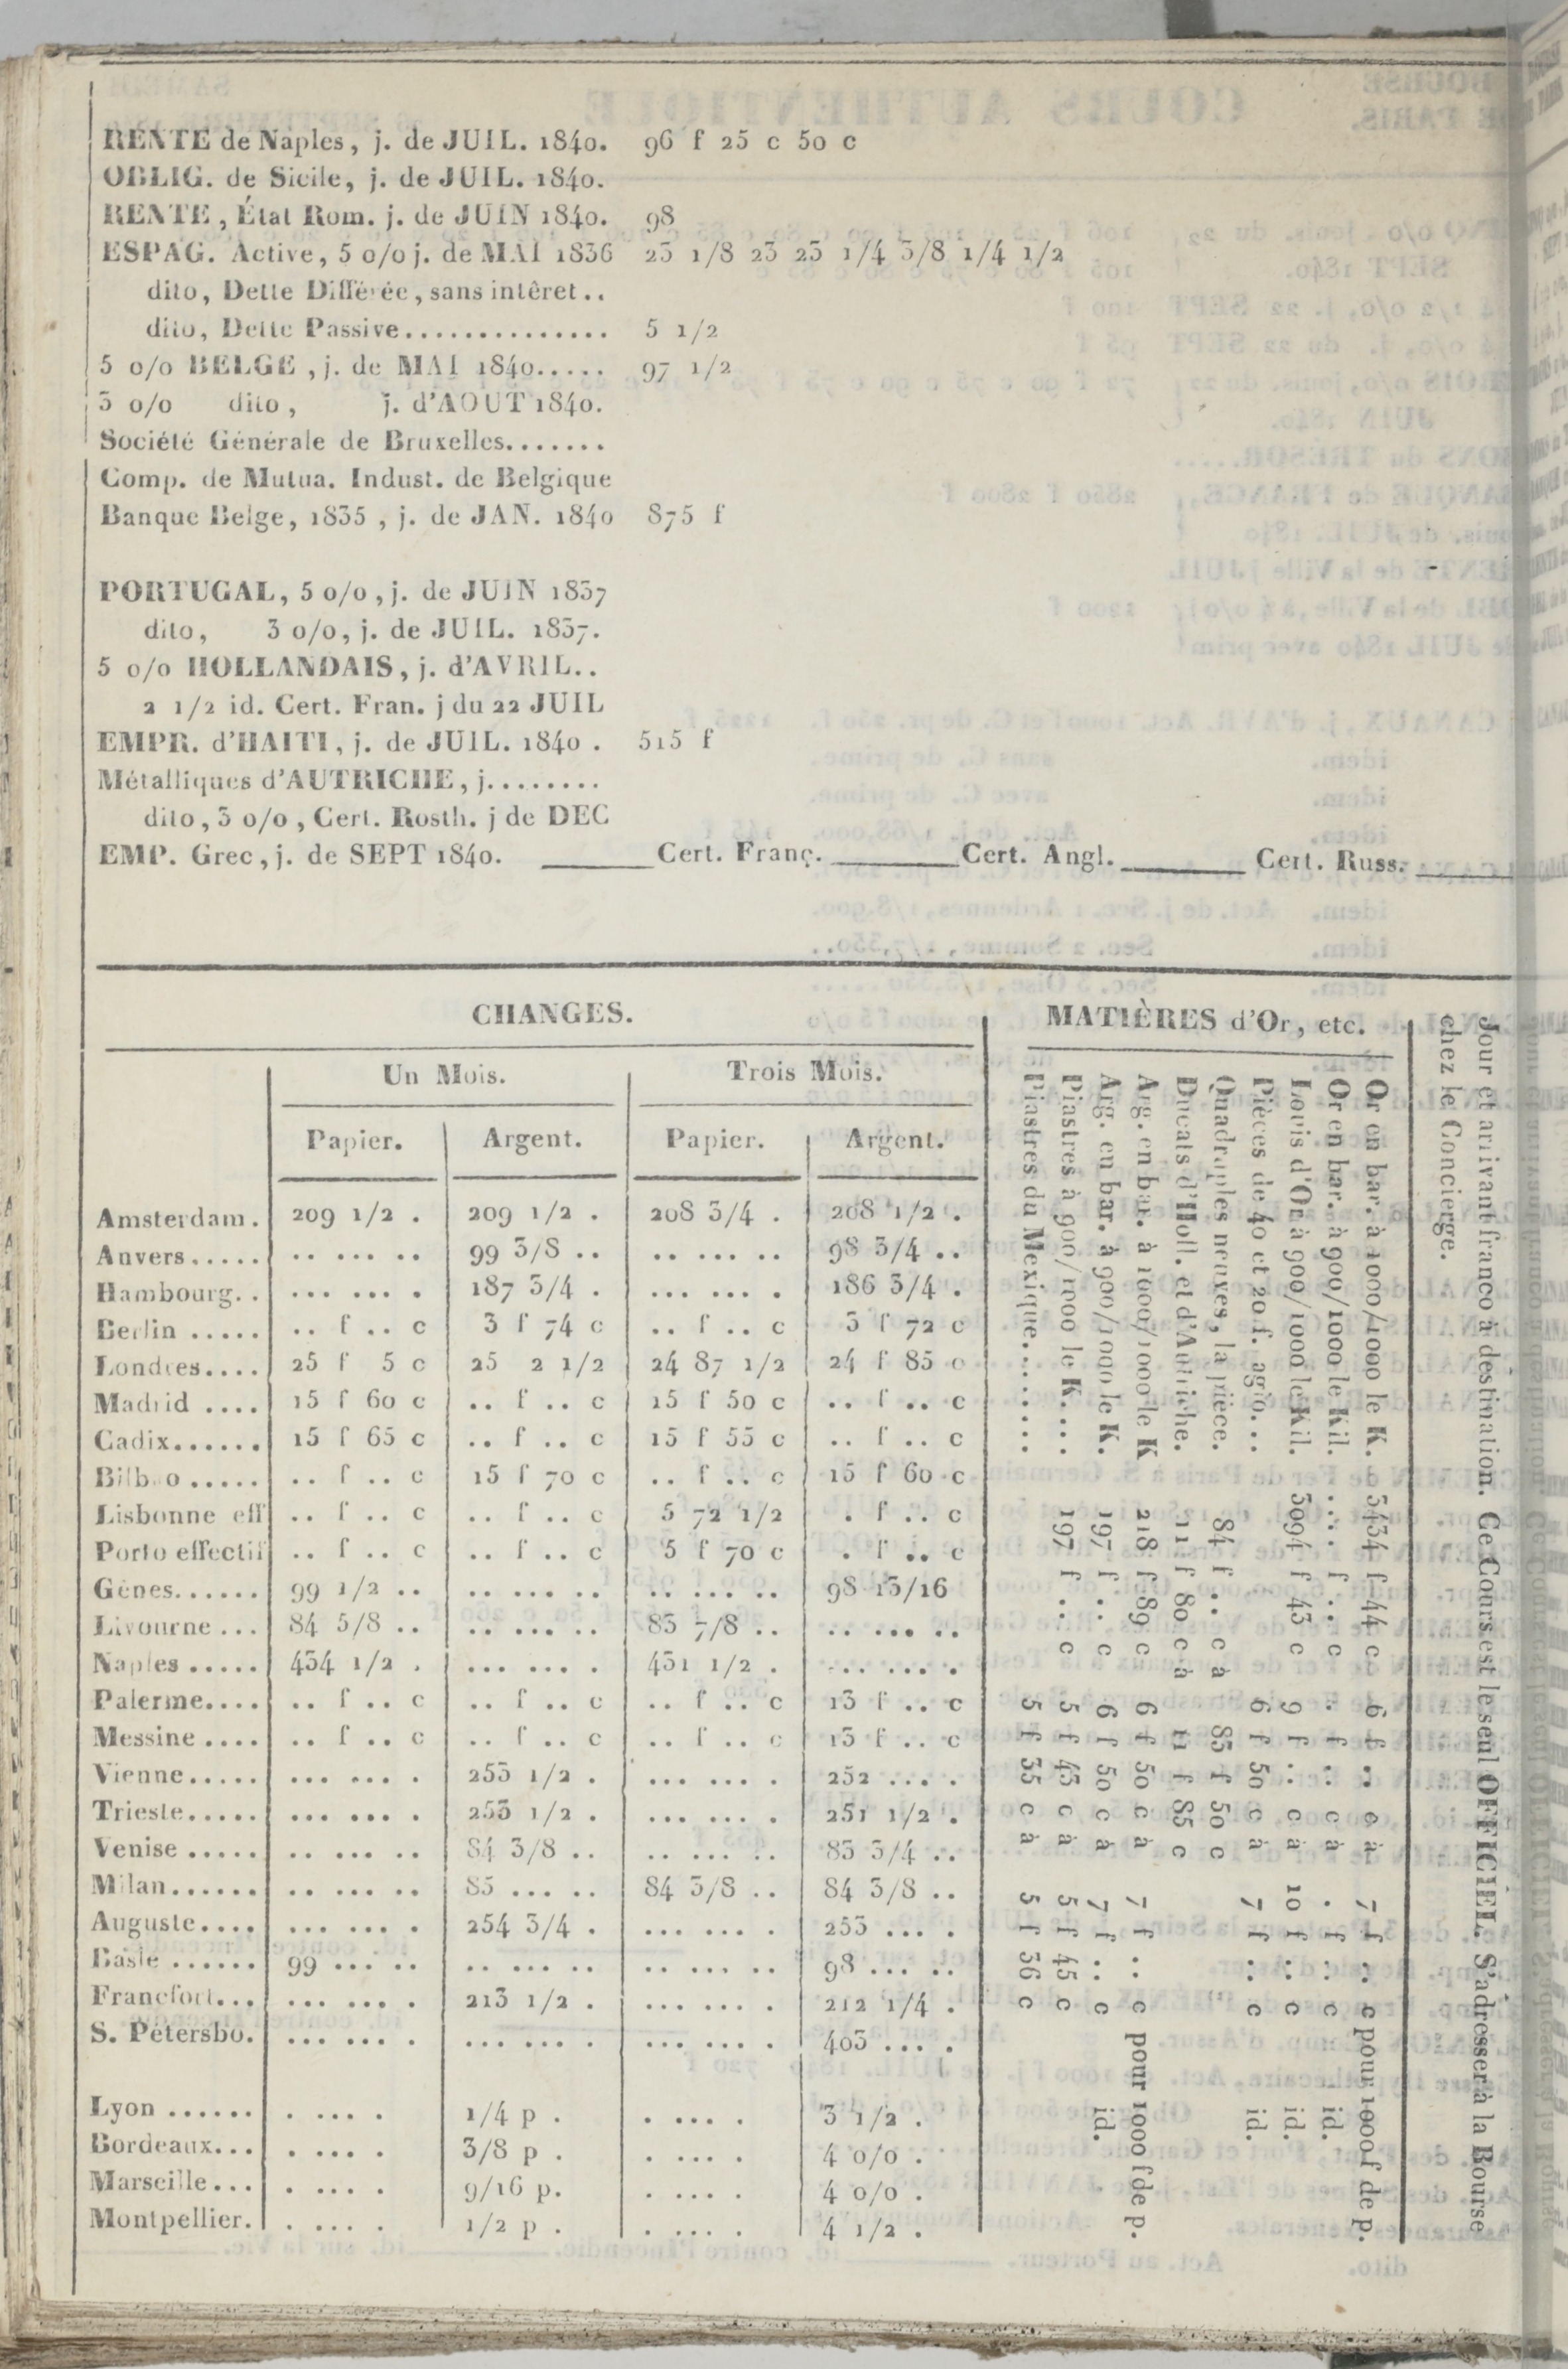 RENTE de Naples, j. de JUIL. 1840. 96 f 25 c 50 c
OBLIG. de Sicile, j. de JUIL. 1840.
RENTE, État Rom. j. de JUIN 1840. 98
ESPAG. Active, 5 0/0 j. de MAI 1836 23 1/8 23 23 1/4 3/8 1/4 1/2
dito, Dette Différée, sans intêret..
dito, Dette Passive.............. 5 1/2
5 0/0 BELGE, j. de MAI 1840..... 97 1/2
3 0/0 dito, j. d'AOUT 1840.
Société Générale de Bruxelles.......
Comp. de Mutua. Indust. de Belgique
Banque Belge, 1835, j. de JAN. 1840 875 f
PORTUGAL, 5 0/0, j. de JUIN 1837
dito, 3 0/0, j. de JUIL. 1837.
5 0/0 HOLLANDAIS, j. d'AVRIL..
2 1/2 id. Cert. Fran. j du 22 JUIL
EMPR. d'HAITI, j. de JUIL. 1840 . 515 f
Métalliques d'AUTRICHE, j........
dito, 3 0/0, Cert. Rosth. j de DEC
EMP. Grec, j. de SEPT 1840. ______ Cert. Franç. ______ Cert. Angl. ______ Cert. Russ. ______
CHANGES.
Un Mois. Trois Mois.
Papier. Argent. Papier. Argent.
Amsterdam. 209 1/2 . 209 1/2 . 208 3/4 . 208 1/2 .
Anvers..... .. ... .. 99 3/8 .. .. ... .. 98 3/4 ..
Hambourg.. ... ... . 187 3/4 . ... ... . 186 3/4 .
Berlin ..... .. f .. c 3 f 74 c .. f .. c 3 f 72 c
Londres.... 25 f 5 c 25 2 1/2 24 87 1/2 24 f 85 c
Madrid .... 15 f 60 c .. f .. c 15 f 50 c .. f .. c
Cadix...... 15 f 65 c .. f .. c 15 f 55 c .. f .. c
Bilbao ..... .. f .. c 15 f 70 c .. f .. c 15 f 60 c
Lisbonne eff .. f .. c .. f .. c 5 72 1/2 . f .. c
Porto effectif .. f .. c .. f .. c 5 f 70 c . f .. c
Gênes...... 99 1/2 .. .. ... .. .. ... .. 98 13/16
Livourne ... 84 5/8 .. .. ... .. 83 7/8 .. .. ... ..
Naples ..... 434 1/2 . ... ... . 431 1/2 . ... ... .
Palerme.... .. f .. c .. f .. c .. f .. c 13 f .. c
Messine .... .. f .. c .. f .. c .. f .. c 13 f .. c
Vienne..... ... ... . 253 1/2 . ... ... . 252 ... .
Trieste..... ... ... . 253 1/2 . ... ... . 251 1/2 .
Venise ..... .. ... .. 84 3/8 .. .. ... .. 83 3/4 ..
Milan...... .. ... .. 85 ... .. 84 3/8 .. 84 3/8 ..
Auguste.... ... ... . 254 3/4 . ... ... . 253 ... .
Basle ...... 99 ... .. .. ... .. .. ... .. 98 ... ..
Francfort... ... ... . 213 1/2 . ... ... . 212 1/4 .
S. Pétersbo. ... ... . ... ... . ... ... . 403 ... .
Lyon ...... . ... . 1/4 p . . ... . 3 1/2 .
Bordeaux... . ... . 3/8 p . . ... . 4 0/0 .
Marseille... . ... . 9/16 p. . ... . 4 0/0 .
Montpellier. . ... . 1/2 p . . ... . 4 1/2 .
MATIÈRES d'Or, etc.
Or en bar. à 1000/1000 le K. 3434 f 44 c 6 f .. c à 7 f .. c pour 1000 f de p.
Or en bar. à 900/1000 le Kil. .... f ... c . f .. c à . f .. c id.
Louis d'Or à 900/1000 le Kil. 3094 f 43 c 9 f .. c à 10 f .. c id.
Pièces de 40 et 20 f. agio... 6 f 50 c à 7 f .. c id.
Quadruples neuves, la pièce. 84 f .. c à 83 f 50 c
Ducats d'Holl. et d'Autriche. 11 f 80 c à 11 f 85 c
Arg. en bar. à 1000/1000 le K 218 f 89 c 6 f 50 c à 7 f .. c pour 1000 f de p.
Arg. en bar. à 900/1000 le K. 197 f .. c 6 f 50 c à 7 f .. c id.
Piastres à 900/1000 le K.... 197 f .. c 5 f 43 c à 5 f 45 c
Piastres du Mexique........ 5 f 35 c à 5 f 36 c
Jour et arrivant franco à destination. Ce Cours est le seul OFFICIEL. S'adresser à la Bourse
chez le Concierge.